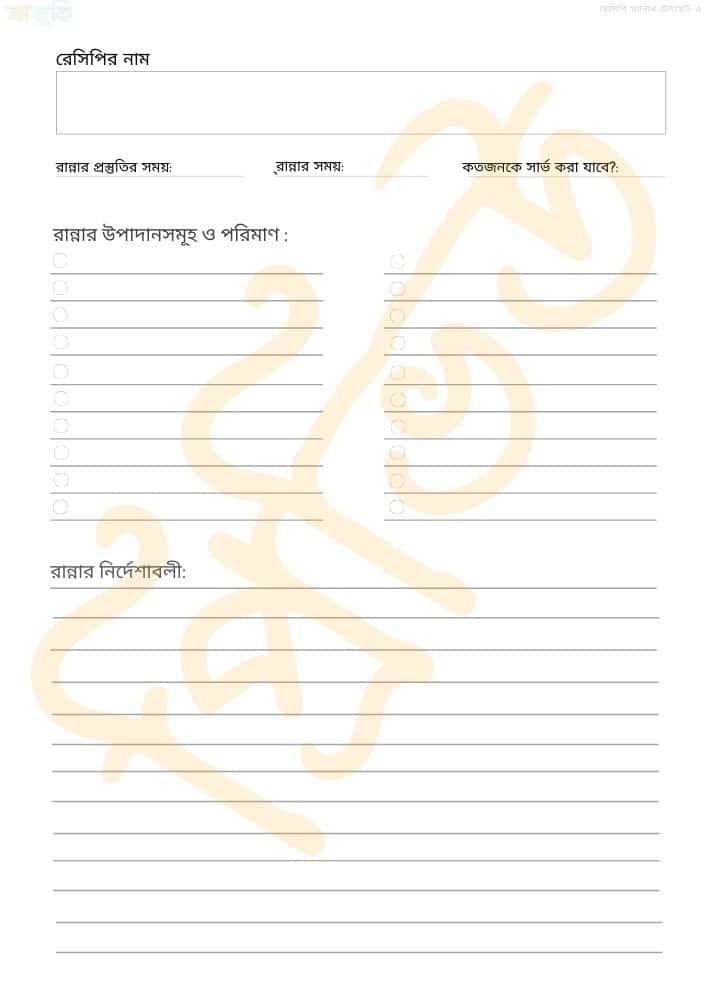 রেসিপি প্ল্যানার টেমপ্লেট-৫
রেসিপির নাম
রান্নার প্রস্তুতির সময়: ্রান্নার সময়: কতজনকে সার্ভ করা যাবে?:
রান্নার উপাদানসমূহ ও পরিমাণ :
রান্নার নির্দেশাবলী: